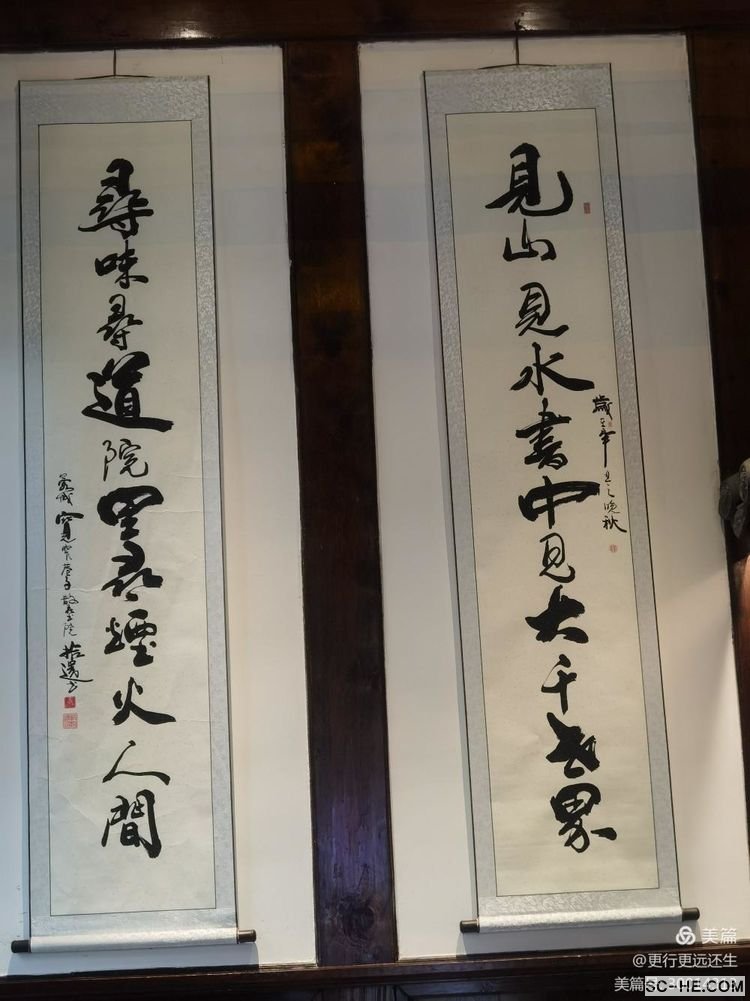 見山見水書中見大千世界
歲辛丑之晚秋
尋味尋道院里尋煙火人間
美篇
@更行更远还生
美篇
SC-HE.COM